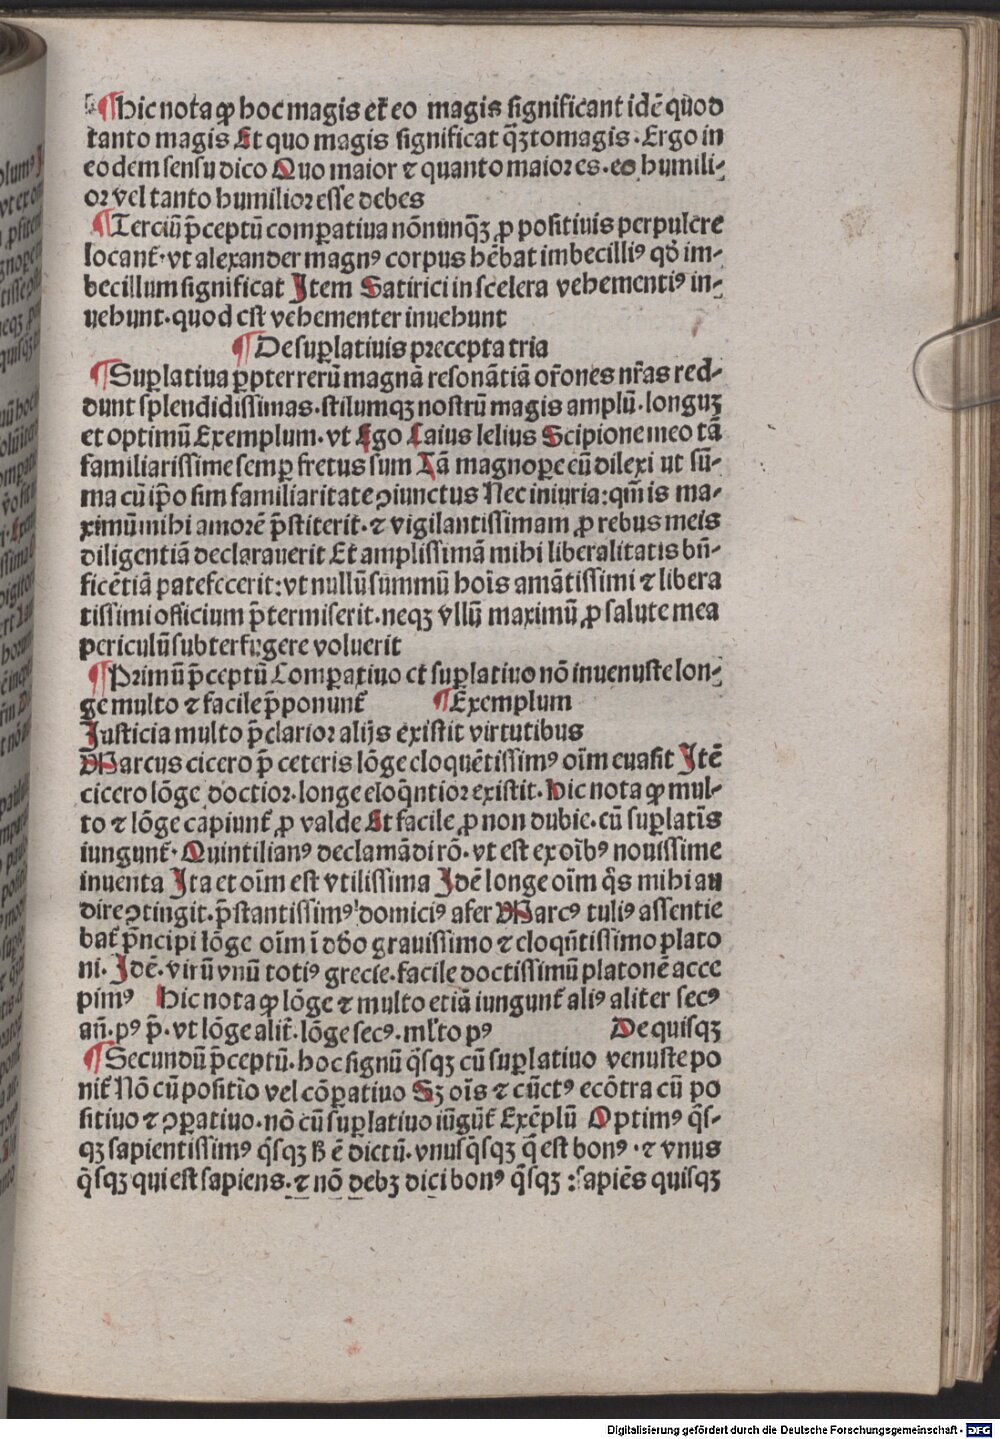 ¶Hic nota ꝙ hoc magis et̄ eo magis significant idē quod
tanto magis Et quo magis significat q̄ꝫtomagis. Ergo in
eodem sensu dico Quo maior ⁊ quanto maior es. eo humili-
or vel tanto humilior esse debes
¶Terciū p̄ceptū comꝑatiua nōnunqꝫ ꝓ positiuis perpulcre
locant᷒. vt alexander magnꝰ corpus hēbat imbecilliꝰ qd̄ im-
becillum significat Item Satirici in scelera vehementiꝰ in-
uehunt. quod est vehementer inuehunt
¶De suꝑlatiuis precepta tria
¶Suꝑlatiua ꝓpter rerū magnā resonātiā or̄ones nr̄as red-
dunt splendidissimas. stilumqꝫ nostrū magis amplū. longuꝫ
et optimū Exemplum. vt Ego Caius lelius Scipione meo tā
familiarissime semꝑ fretus sum Tā magnopere eū dilexi ut sū-
ma cū ip̄o sim familiaritate ꝯiunctus Nec iniuria: qm̄ is ma-
ximū mihi amorē p̄stiterit. ⁊ vigilantissimam ꝓ rebus meis
diligentiā declarauerit Et amplissimā mihi liberalitatis bn̄-
ficētiā patefecerit: vt nullū summū hoīs amātissimi ⁊ libera
tissimi officium p̄termiserit. neqꝫ vllū maximū ꝓ salute mea
periculū subterfugere voluerit
¶Primū p̄ceptū Comꝑatiuo et suꝑlatiuo nō inuenuste lon-
ge multo ⁊ facile p̄ponunt᷒ ¶Exemplum
Iusticia multo p̄clarior alijs existit virtutibus
Marcus cicero p̄ ceteris lōge eloquētissimꝰ oīm euasit Itē
cicero lōge doctior. longe eloq̄ntior existit. Hic nota ꝙ mul-
to ⁊ lōge capiunt᷒ ꝓ valde Et facile ꝓ non dubie. cū suꝑlatīs
iungunt᷒. Quintilianꝰ declamādi rō. vt est ex oībꝰ nouissime
inuenta Ita et oīm est vtilissima Idē longe oīm q̄s mihi au
dire ꝯtingit. p̄stantissimꝰ domiciꝰ afer Marcꝰ tuliꝰ assentie
bat᷒ pͥncipi lōge oīm ī dd̄o grauissimo ⁊ eloqn̄tissimo plato
ni. Idē. virū vnū totiꝰ grecie. facile doctissimū platonē acce
pimꝰ Hic nota ꝙ lōge ⁊ multo etiā iungunt᷒ aliꝰ aliter secꝰ
an̄. pꝰ p̄. vt lōge alit̄. lōge secꝰ. ml̄to pꝰ De quisqꝫ
¶Secundū p̄ceptū. hoc signū qͥsqꝫ cū suꝑlatiuo venuste po
nit᷒ Nō cū positīo vel cōꝑatiuo Sꝫ oīs ⁊ cūctꝰ ecōtra cū po
sitiuo ⁊ ꝯꝑatiuo. nō cū suꝑlatiuo iūgūt᷒ Exēplū Optimꝰ qͥs-
qꝫ sapientissimꝰ qͥsqꝫ ß ē dictū. vnusqͥsqꝫ qͥ est bonꝰ. ⁊ vnus
qͥsqꝫ qui est sapiens. ⁊ nō debꝫ dici bonꝰ qͥsqꝫ: sapiēs quisqꝫ
Digitalisierung gefördert durch die Deutsche Forschungsgemeinschaft - DFG